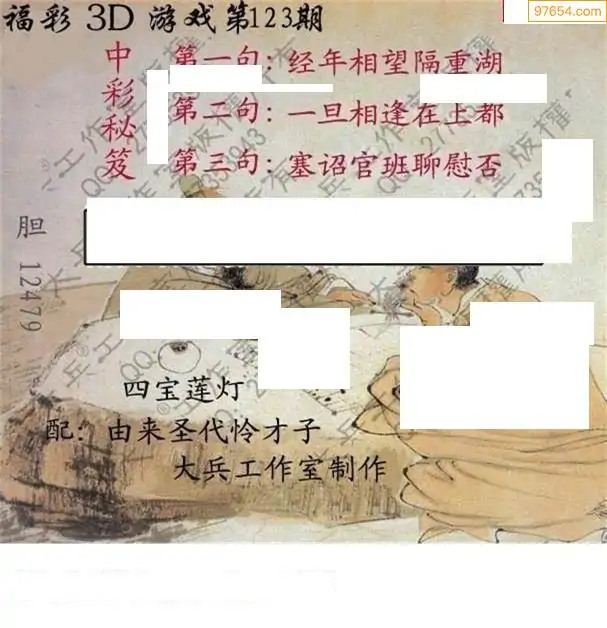 97654.com
福彩 3D 游戏第123期
中彩秘笈
第一句：经年相望隔重湖
第二句：一旦相逢在上都
第三句：塞诏官班聊慰否
胆 12479
四宝莲灯
配：由来圣代怜才子
大兵工作室制作